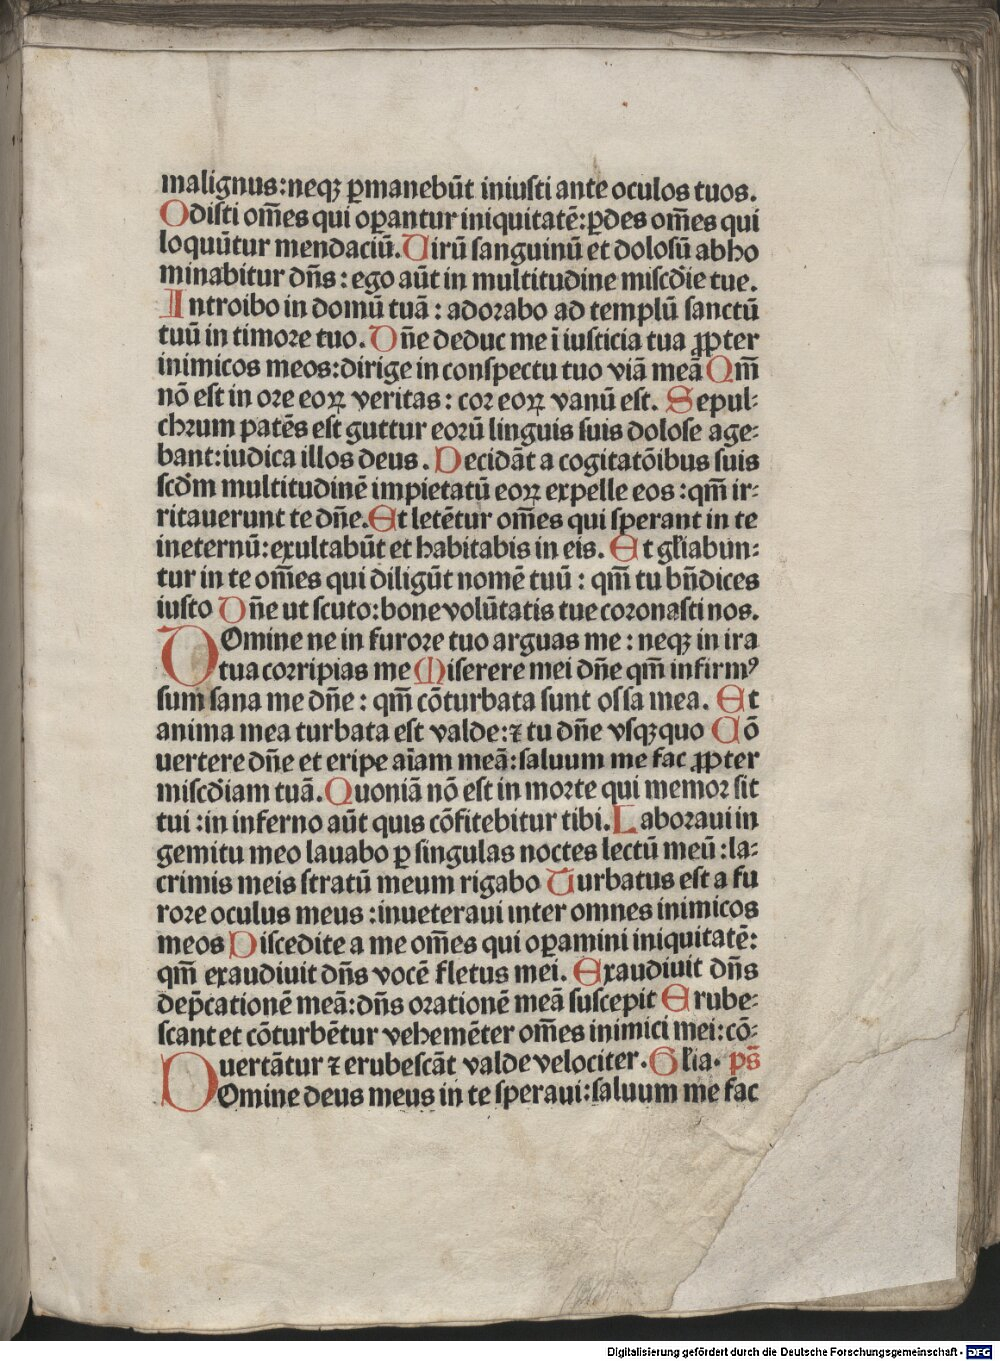 malignus:neqꝫ ꝑmanebūt iniusti ante oculos tuos.
Odisti om̄es qui oꝑantur iniquitatē:ꝑdes om̄es qui
loquūtur mendaciū. Uirū sanguinū et dolosū abho
minabitur dn̄s : ego aūt in multitudine misc̄die tue.
Introibo in domū tuā : adorabo ad templū sanctū
tuū in timore tuo. Dn̄e deduc me ī iusticia tua ꝓpter
inimicos meos:dirige in conspectu tuo viā meā Qm̄
nō est in ore eoꝝ veritas : cor eoꝝ vanū est. Sepul⸗
chrum patēs est guttur eorū linguis suis dolose age⸗
bant:iudica illos deus. Decidāt a cogitatōibus suis
scd̄m multitudinē impietatū eoꝝ expelle eos :qm̄ ir⸗
ritauerunt te dn̄e. Et letētur om̄es qui sperant in te
ineternū:exultabūt et habitabis in eis. Et gl̄iabun⸗
tur in te om̄es qui diligūt nomē tuū : qm̄ tu bn̄dices
iusto Dn̄e ut scuto:bone volūtatis tue coronasti nos.
DOmine ne in furore tuo arguas me : neqꝫ in ira
tua corripias me Miserere mei dn̄e qm̄ infirmꝰ
sum sana me dn̄e : qm̄ cōturbata sunt ossa mea. Et
anima mea turbata est valde:⁊ tu dn̄e vsqꝫquo Cō
uertere dn̄e et eripe aīam meā:saluum me fac ꝓpter
misc̄diam tuā. Quoniā nō est in morte qui memor sit
tui :in inferno aūt quis cōfitebitur tibi. Laboraui in
gemitu meo lauabo ꝑ singulas noctes lectū meū :la⸗
crimis meis stratū meum rigabo Turbatus est a fu
rore oculus meus :inueteraui inter omnes inimicos
meos Discedite a me om̄es qui oꝑamini iniquitatē:
qm̄ exaudiuit dn̄s vocē fletus mei. Exaudiuit dn̄s
dep̄cationē meā:dn̄s orationē meā suscepit Erube⸗
scant et cōturbētur vehemēter om̄es inimici mei:cō⸗
uertātur ⁊ erubescāt valde velociter. Gl̄ia. ps̄
DOmine deus meus in te speraui:saluum me fac
Digitalisierung gefördert durch die Deutsche Forschungsgemeinschaft - DFG